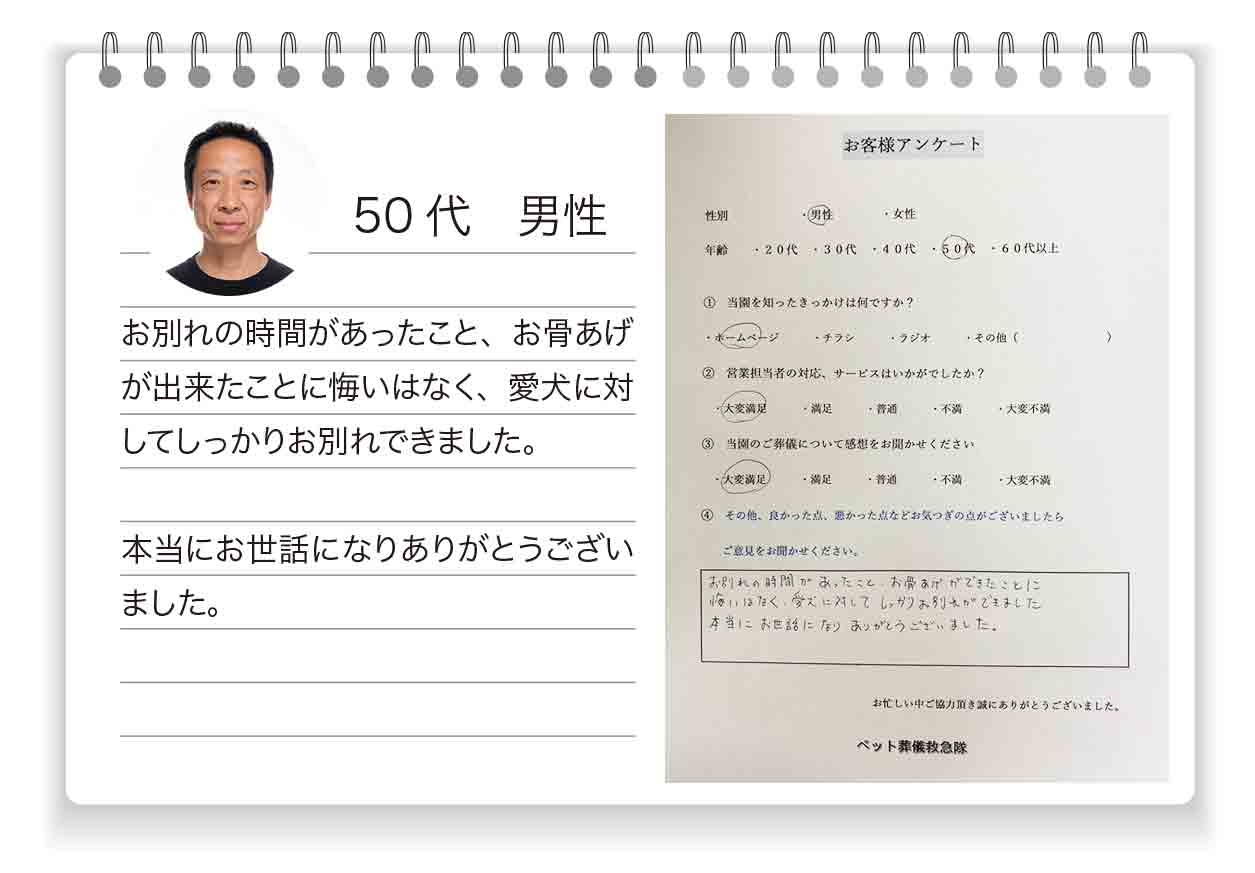 50代 男性
お別れの時間があったこと、お骨あげ
が出来たことに悔いはなく、愛犬に対
してしっかりお別れできました。
本当にお世話になりありがとうござい
ました。
お客様アンケート
性別 ・男性 ・女性
年齢 ・20代 ・30代 ・40代 ・50代 ・60代以上
① 当園を知ったきっかけは何ですか？
・ホームページ ・チラシ ・ラジオ ・その他（ ）
② 営業担当者の対応、サービスはいかがでしたか？
・大変満足 ・満足 ・普通 ・不満 ・大変不満
③ 当園のご葬儀について感想をお聞かせください
・大変満足 ・満足 ・普通 ・不満 ・大変不満
④ その他、良かった点、悪かった点などお気つぎの点がございましたら
ご意見をお聞かせください。
お別れの時間があったこと、お骨あげができたことに
悔いはなく、愛犬に対してしっかりお別れができました
本当にお世話になりありがとうございました。
お忙しい中ご協力頂き誠にありがとうございました。
ペット葬儀救急隊